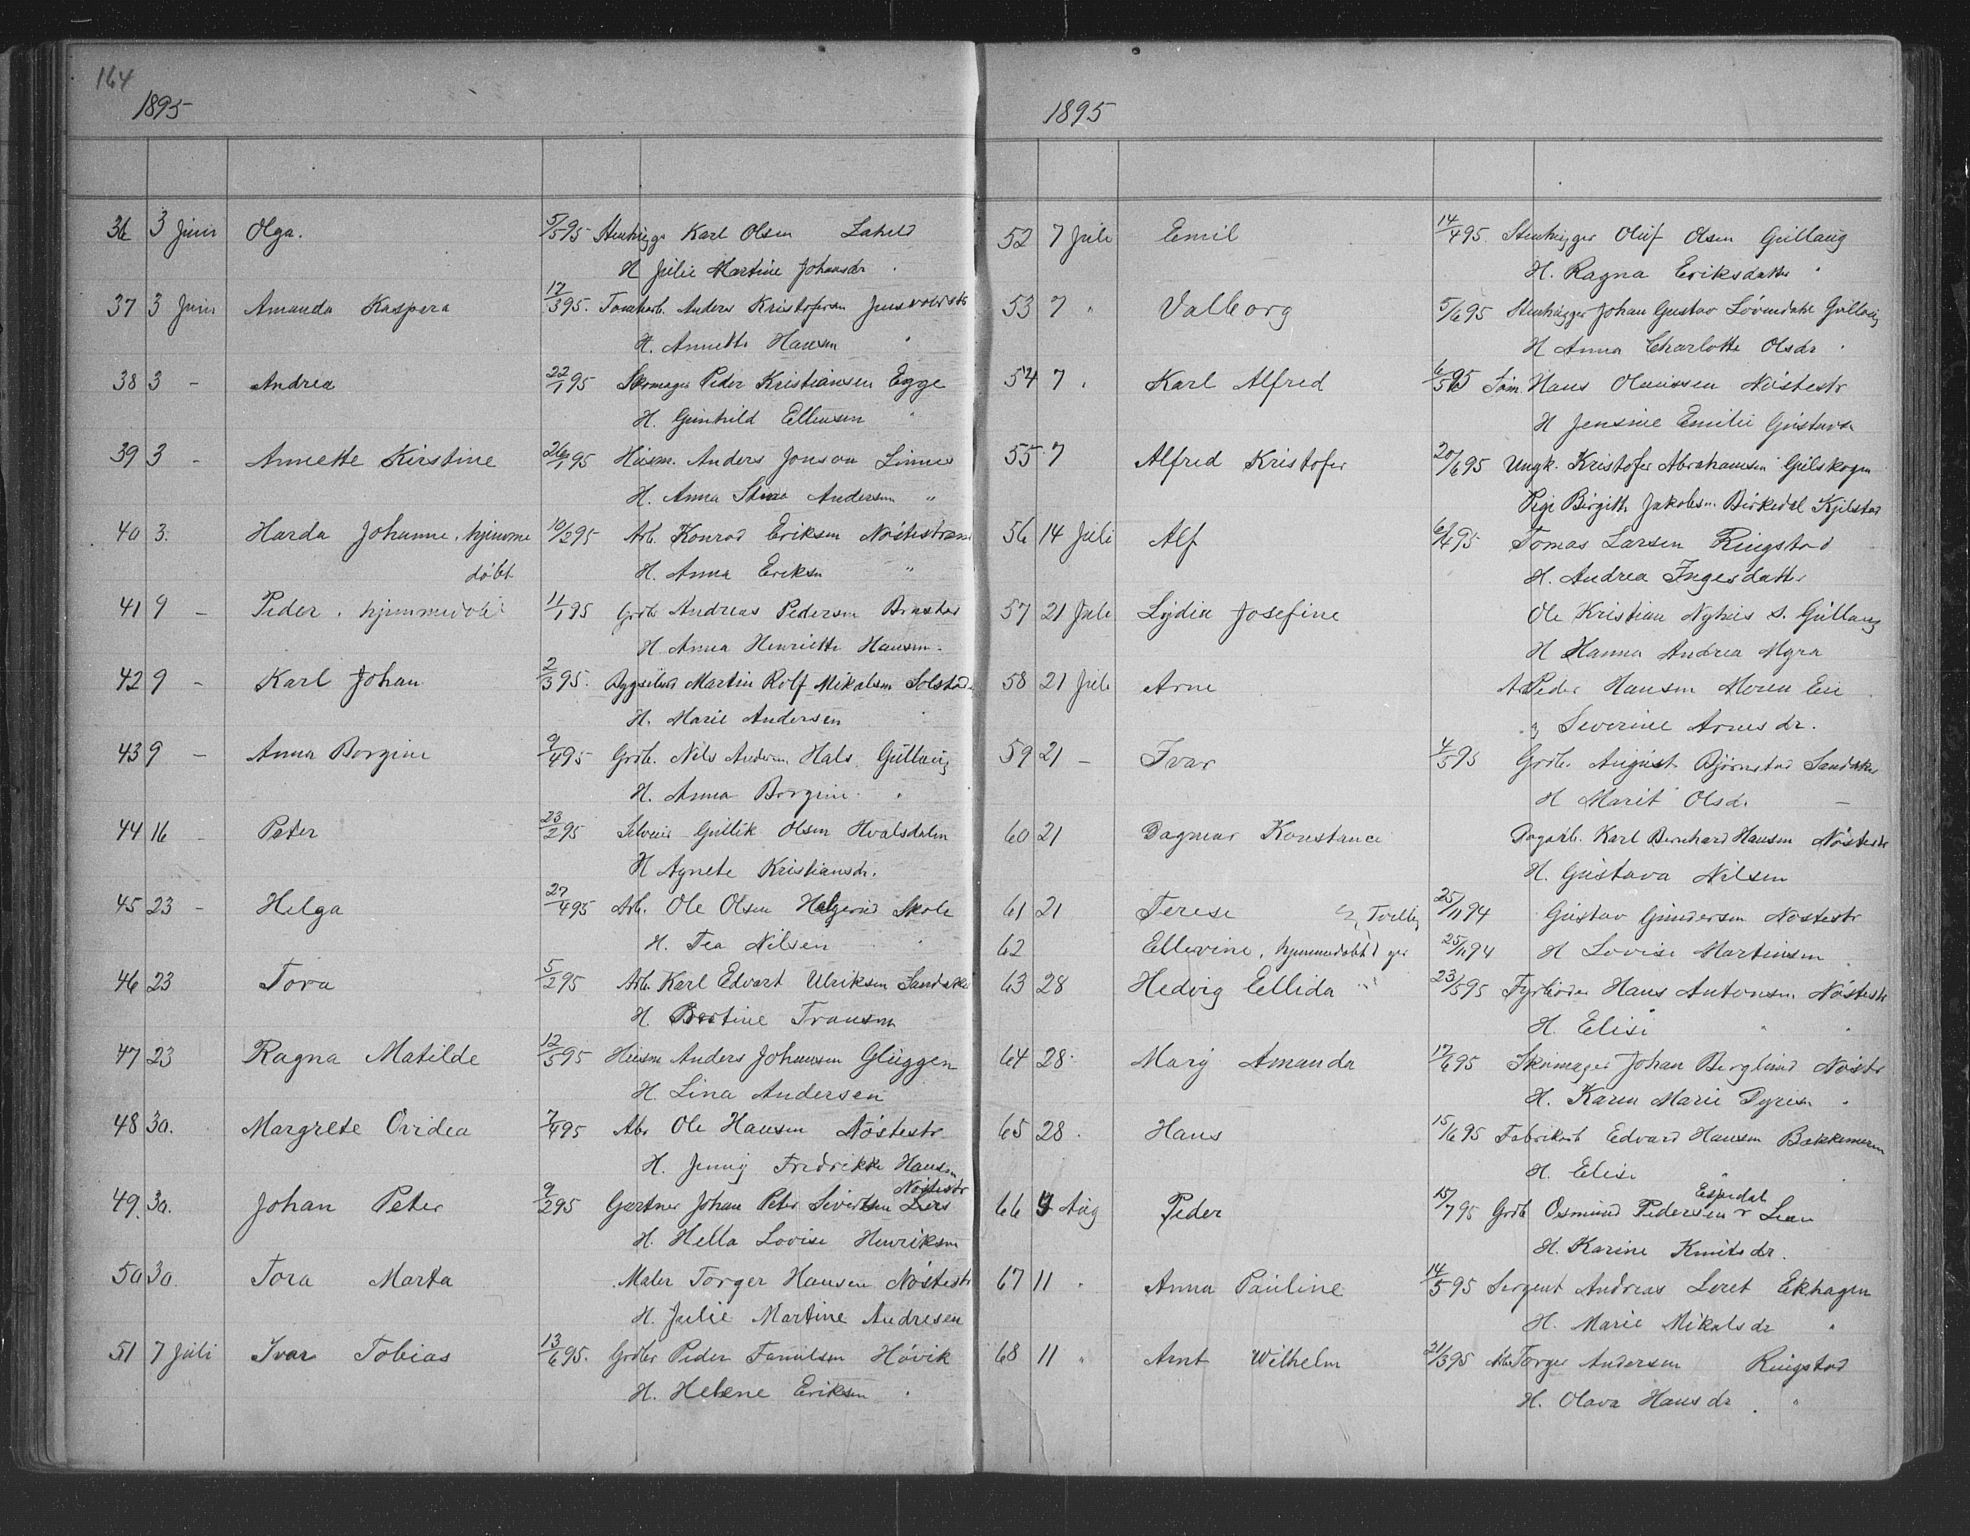 164
1895
36 3 Juni Olga. 5/5 95 Stenhugger Karl Olsen
H Julie Martine Johansdr
37 3 Juni Amanda Kaspara 17/3 95. Anders Kristofersen
H. Annette Hansen "
38 3 - Andrea 22/1 95 Skomager Peder Kristiansen Egge
H. Gunhild Ellensen "
39 3 - Annette Kirstine 26/1 95 Husm. Anders Jonson Linnes
H. Anna Stina Andersen "
40 3. Harda Johanne, hjemme 10/2 95 Arb. Konrad Eriksen Nøstestrand
døbt H. Anna Eriksen "
41 9 - Peder, hjemmedøbt 11/1 95 Grdbr Andreas Pedersen
H. Anna Henriette Hansen
42 9 - Karl Johan 2/3 95. Martin Rolf Mikalsen Solstad
H. Marie Andersen
43 9 - Anna Borgine 9/4 95 Grdb. Nils Andersen Hals, Gullaug
H. Anna Borgine "
44 16 - Peter 23/2 95 Gullik Olsen Hvalsdalen
H Agnete Kristiansdr.
45 23 - Helga 27/4 95 Arb. Ole Olsen Helgerud Skole
H. Tea Nilsen "
46 23 Tora 5/2 95 Arb. Karl Edvart Ulriksen Sandaker
H. Bertine Fransen
47 23 Ragna Matilde 12/5 95 Husm Anders Johansen Gluggen
H. Lina Andersen
48 30. Margrete Ovidea 7/4 95 Abr Ole Hansen Nøstestr
H. Jenny Fredrikke Hansen
Nøstestr
49. 30. Johan Peter 9/2 95 Gartner Johan Peter Sivertsen Liers
H. Hella Lovise Henriksen
50 30. Tora Marta Maler Torger Hansen Nøstestr
H. Julie Martine Andresen
51 7 Juli Ivar Tobias 13/6 95. Grdbr Peder Høvik
H. Helene Eriksen "
1895
52 7 Juli Emil 14/4 95. Stenhugger Oluf Olsen Gullaug
H. Ragna Eriksdatter "
53 7 " Valborg 5/6 95 Stenhugger Johan Gustav Løvendahl Gullaug
H Anna Charlotte Olsdr "
54 7 " Karl Alfred 6/5 95 Tøm. Hans Olaussen Nøstestr
H Jensine Emilie Gustavsen
55 7 Alfred Kristofer 20/6 95 Ungk. Kristofer Abrahamsen Gulskogen
Pige Birgitte Jakobsen Birkedal Kjelstad
56 14 Juli Alf 6/4 95 Tomas Larsen Ringstad
H. Andrea Ingesdatter
57 21 Juli Lydia Josefine Ole Kristian S. Gullaug
H Hanna Andrea Myra
58 21 Juli Arne Peder Hansen Moren Eie
" Severine Arnesdr.
59 21 - Ivar 4/5 95 Grdbr August Bjørnstad Sandaker
H Marit Olsdr -
60 21 Dagmar Konstance Dagarb. Karl Bernhard Hansen Nøstestr
H. Gustava Nilsen
61 21 Terese } Tvillin 25/11 94 Gustav Gundersen Nøstestr
62 Ellevine, hjemmedøbt } ger 25/11 94 H Lovise Martinsen
63 28 Hedvig Ellida " 23/5 95 Fyrbøder Hans Antonsen Nøstestr
H. Elise " "
64 28. Mary Amanda 17/6 95 Skomager Johan Berglund Nøstestr
H. Karen Marie "
65 28. Hans 15/6 95 Fabrikarb Edvard Hansen
H. Elise "
Espedal
66 9 Aug Peder 15/7 95 Grdb Osmund Pedersen Lian
H. Karine Knutsdr.
67 11 " Anna Pauline 14/5 95 Sergent Andreas Loret Ekhagen
H. Marie Mikalsdr "
68 11 " Arnt Wilhelm 21/3 95 Arb Torger Andersen Ringstad
H. Olava Hansdr. "